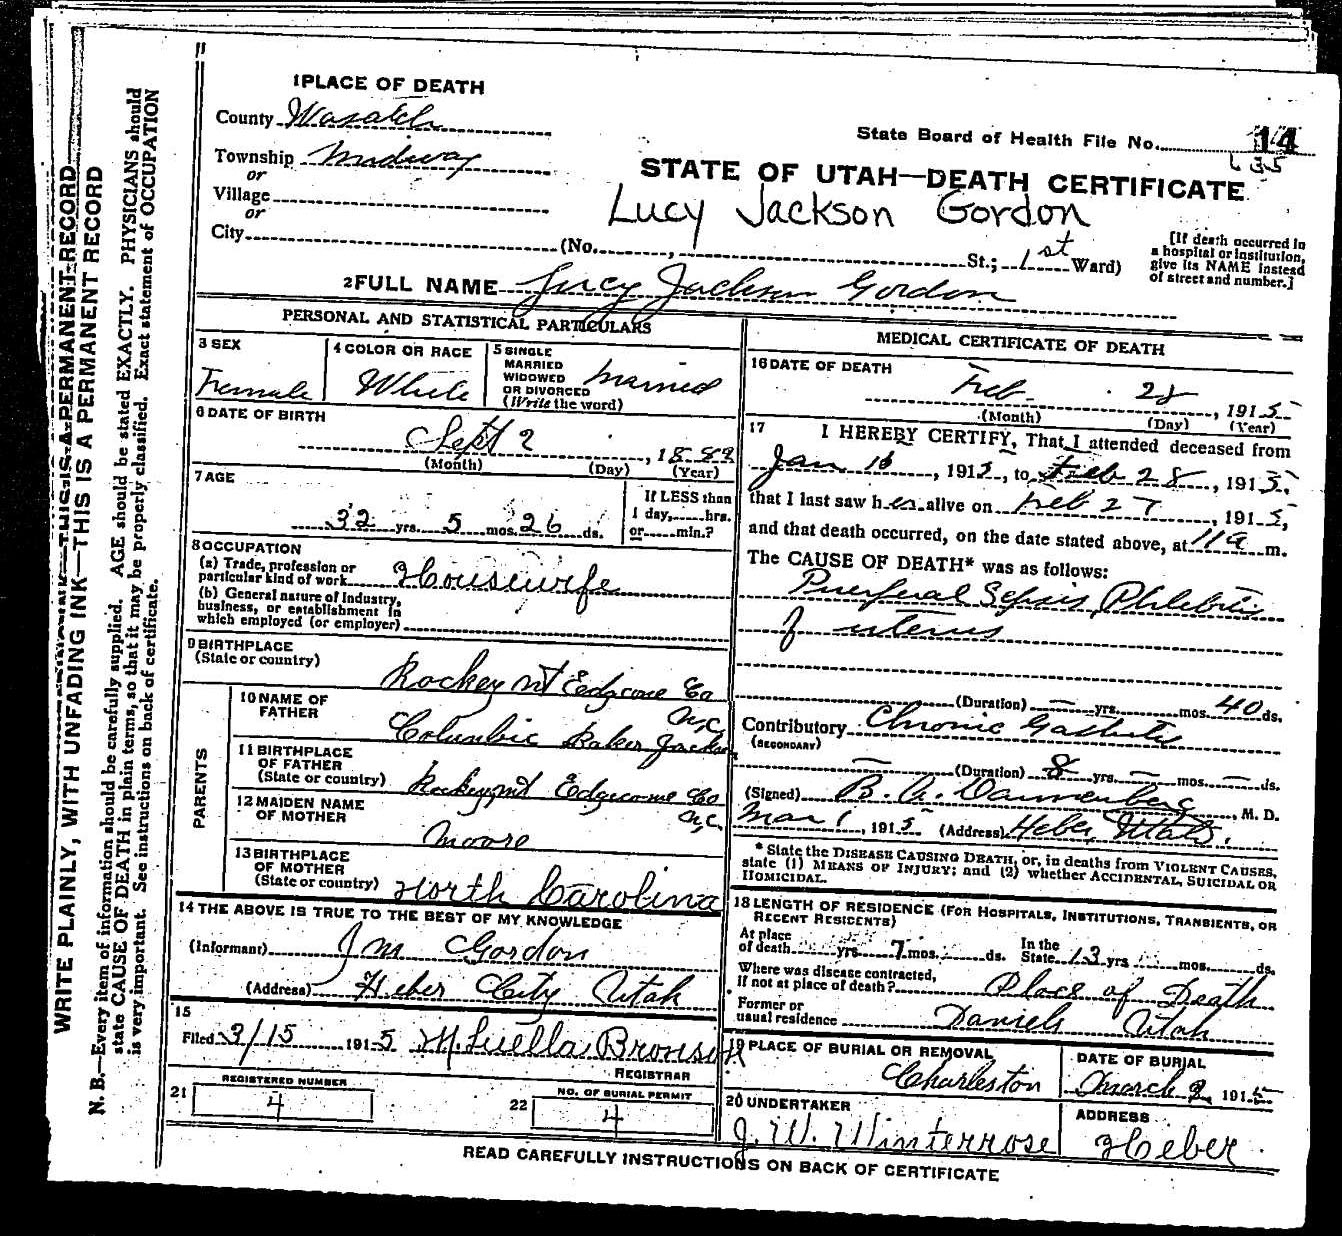 1 PLACE OF DEATH
County Wasatch
Township Midway
or
Village
or
City (No. , St.; 1st Ward)
State Board of Health File No. 14
135
STATE OF UTAH—DEATH CERTIFICATE
Lucy Jackson Gordon
[If death occurred in
a hospital or institution,
give its NAME instead
of street and number.]
2 FULL NAME Lucy Jackson Gordon
PERSONAL AND STATISTICAL PARTICULARS
3 SEX
Female
4 COLOR OR RACE
White
5 SINGLE
MARRIED
WIDOWED
OR DIVORCED
(Write the word)
Married
6 DATE OF BIRTH
Sept 2 , 1882
(Month) (Day) (Year)
7 AGE
32 yrs. 5 mos. 26 ds.
If LESS than
1 day, hrs.
or min.?
8 OCCUPATION
(a) Trade, profession or
particular kind of work Housewife
(b) General nature of Industry,
business, or establishment in
which employed (or employer)
9 BIRTHPLACE
(State or country)
Rockey Mt Edgcome Co
N.C.
PARENTS
10 NAME OF
FATHER
Columbic Baker Jackson
11 BIRTHPLACE
OF FATHER
(State or country) Rockey mt Edgecome Co
N.C.
12 MAIDEN NAME
OF MOTHER
Moore
13 BIRTHPLACE
OF MOTHER
(State or country) North Carolina
14 THE ABOVE IS TRUE TO THE BEST OF MY KNOWLEDGE
(Informant) J M Gordon
(Address) Heber City Utah
15
Filed 3/15 1915 M. Luella Bronson
REGISTRAR
21 REGISTERED NUMBER
4
22 NO. OF BURIAL PERMIT
4
MEDICAL CERTIFICATE OF DEATH
16 DATE OF DEATH
Feb. 28 , 1915
(Month) (Day) (Year)
17 I HEREBY CERTIFY, That I attended deceased from
Jan 16 , 1915, to Feb 28 , 1915,
that I last saw her alive on Feb 27 , 1915,
and that death occurred, on the date stated above, at 11 a m.
The CAUSE OF DEATH* was as follows:
Puerperal Sepsis, Phlebitis
of uterus
(Duration) — yrs. — mos. 40 ds.
Contributory Chronic Gastritis
(SECONDARY)
— (Duration) 8 yrs. — mos. — ds.
(Signed) B. A. Dannenberg , M. D.
Mar 1 , 1915 (Address) Heber, Utah.
* State the DISEASE CAUSING DEATH, or, in deaths from VIOLENT CAUSES,
state (1) MEANS OF INJURY; and (2) whether ACCIDENTAL, SUICIDAL OR
HOMICIDAL.
18 LENGTH OF RESIDENCE (FOR HOSPITALS, INSTITUTIONS, TRANSIENTS, OR
RECENT RESIDENTS)
At place
of death yrs. 7 mos. ds.
In the
State 13 yrs mos. ds.
Where was disease contracted,
if not at place of death? Place of Death
Former or
usual residence Daniels Utah
19 PLACE OF BURIAL OR REMOVAL
Charleston
DATE OF BURIAL
March 2, 1915
20 UNDERTAKER
J. W. Winterrose
ADDRESS
Heber
READ CAREFULLY INSTRUCTIONS ON BACK OF CERTIFICATE
WRITE PLAINLY, WITH UNFADING INK—THIS IS A PERMANENT RECORD
N. B.—Every item of information should be carefully supplied. AGE should be stated EXACTLY. PHYSICIANS should
state CAUSE OF DEATH in plain terms, so that it may be properly classified. Exact statement of OCCUPATION
is very important. See instructions on back of certificate.